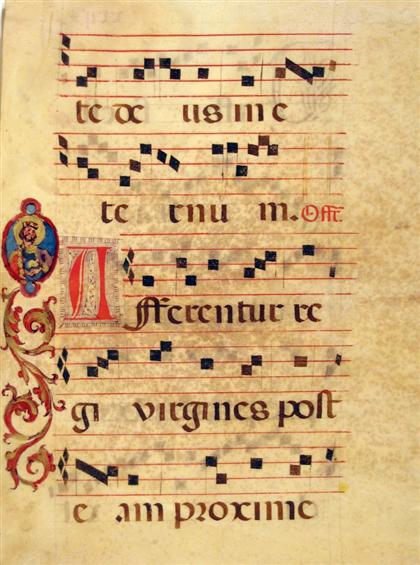 te de us in e
te rnu m. Off.
Afferentur re
gi virgines post
e am proxime